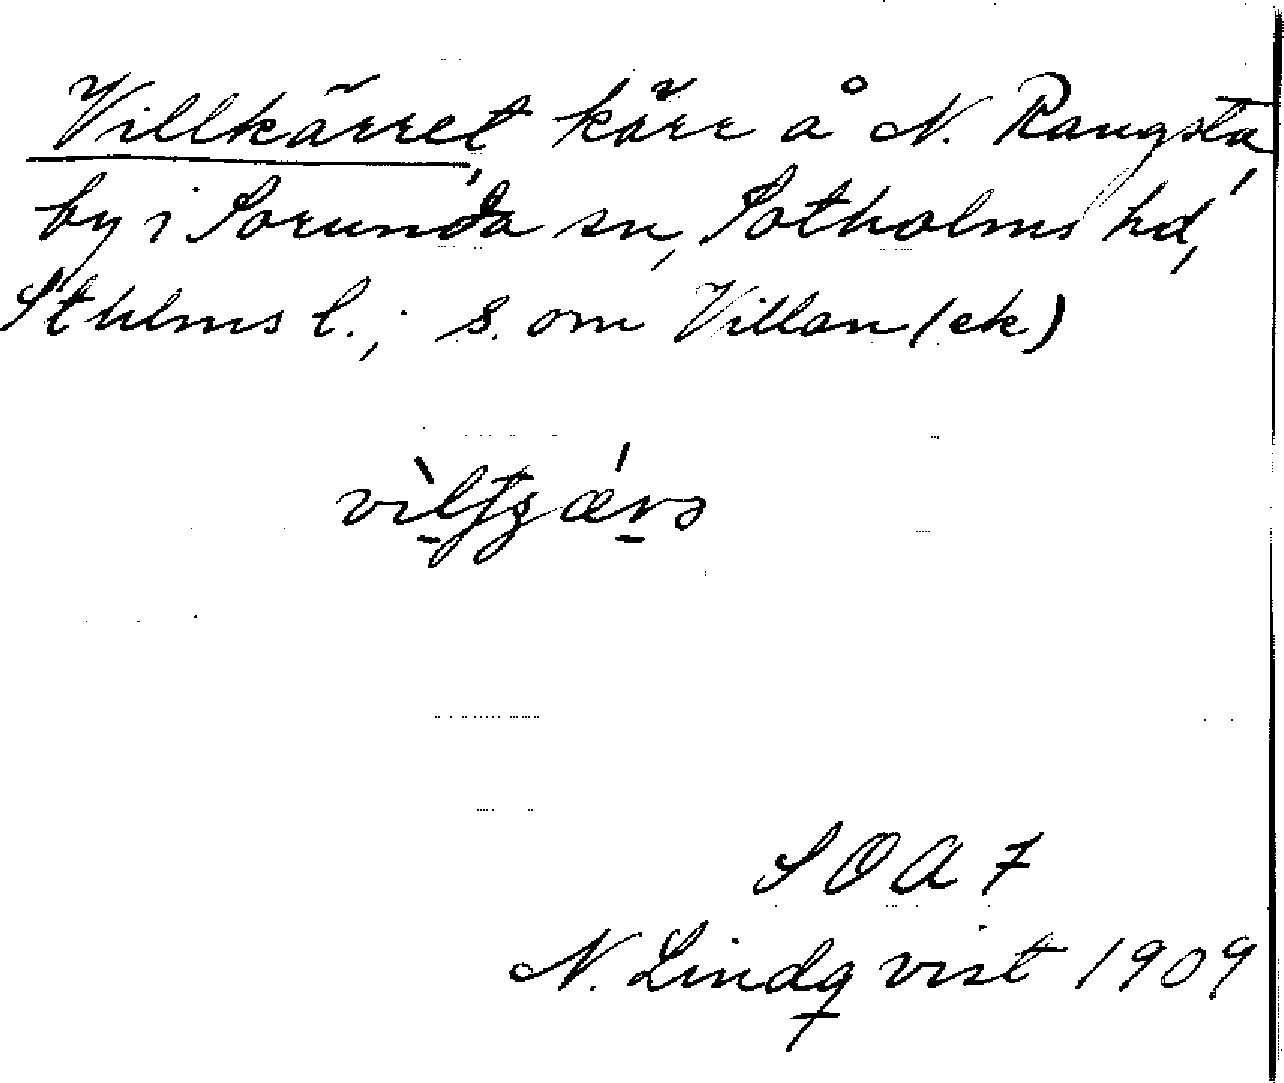 Villkärret, kärr å N. Rangsta
by i Sorunda sn, Sotholms hd,
Sthlms l.; s. om Villan (ek)
SOAF
N. Lindqvist 1909